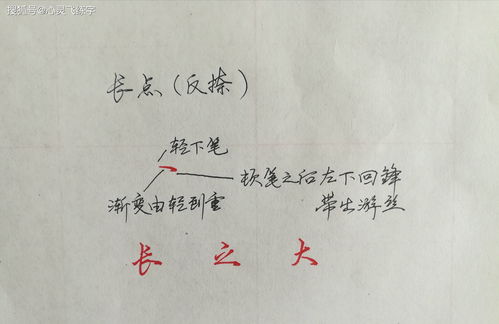 搜狐号@心灵飞练字
长点（反捺）
轻下笔
顿笔之后左下回锋
渐变由轻到重
带出游丝
长 立 大